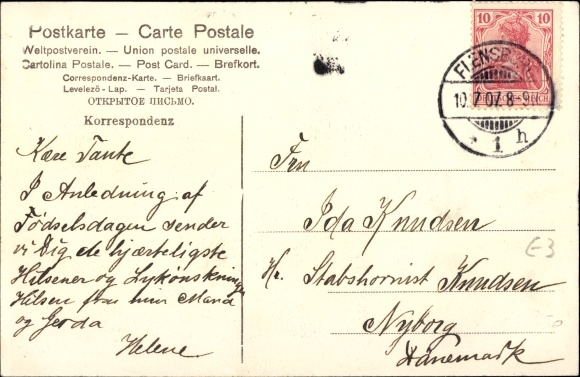 Postkarte — Carte Postale
Weltpostverein. — Union postale universelle.
Cartolina Postale. — Post Card. — Brefkort.
Correspondenz-Karte. — Briefkaart.
Levelező-Lap. — Tarjeta Postal.
ОТКРЫТОЕ ПИСЬМО.
Korrespondenz
Kære Tante
I Anledning af
Fødselsdagen sender
vi Dig de hjærteligste
Hilsener og Lykønskninger
Hilsen fra min Mand
og Gerda
Helene
10 10
FLENSBURG
10.7.07.8-9
* 1 h
REICH
Fru
Ida Knudsen
Hr. Stabshornist Knudsen
Nyborg
Dänemark
E3